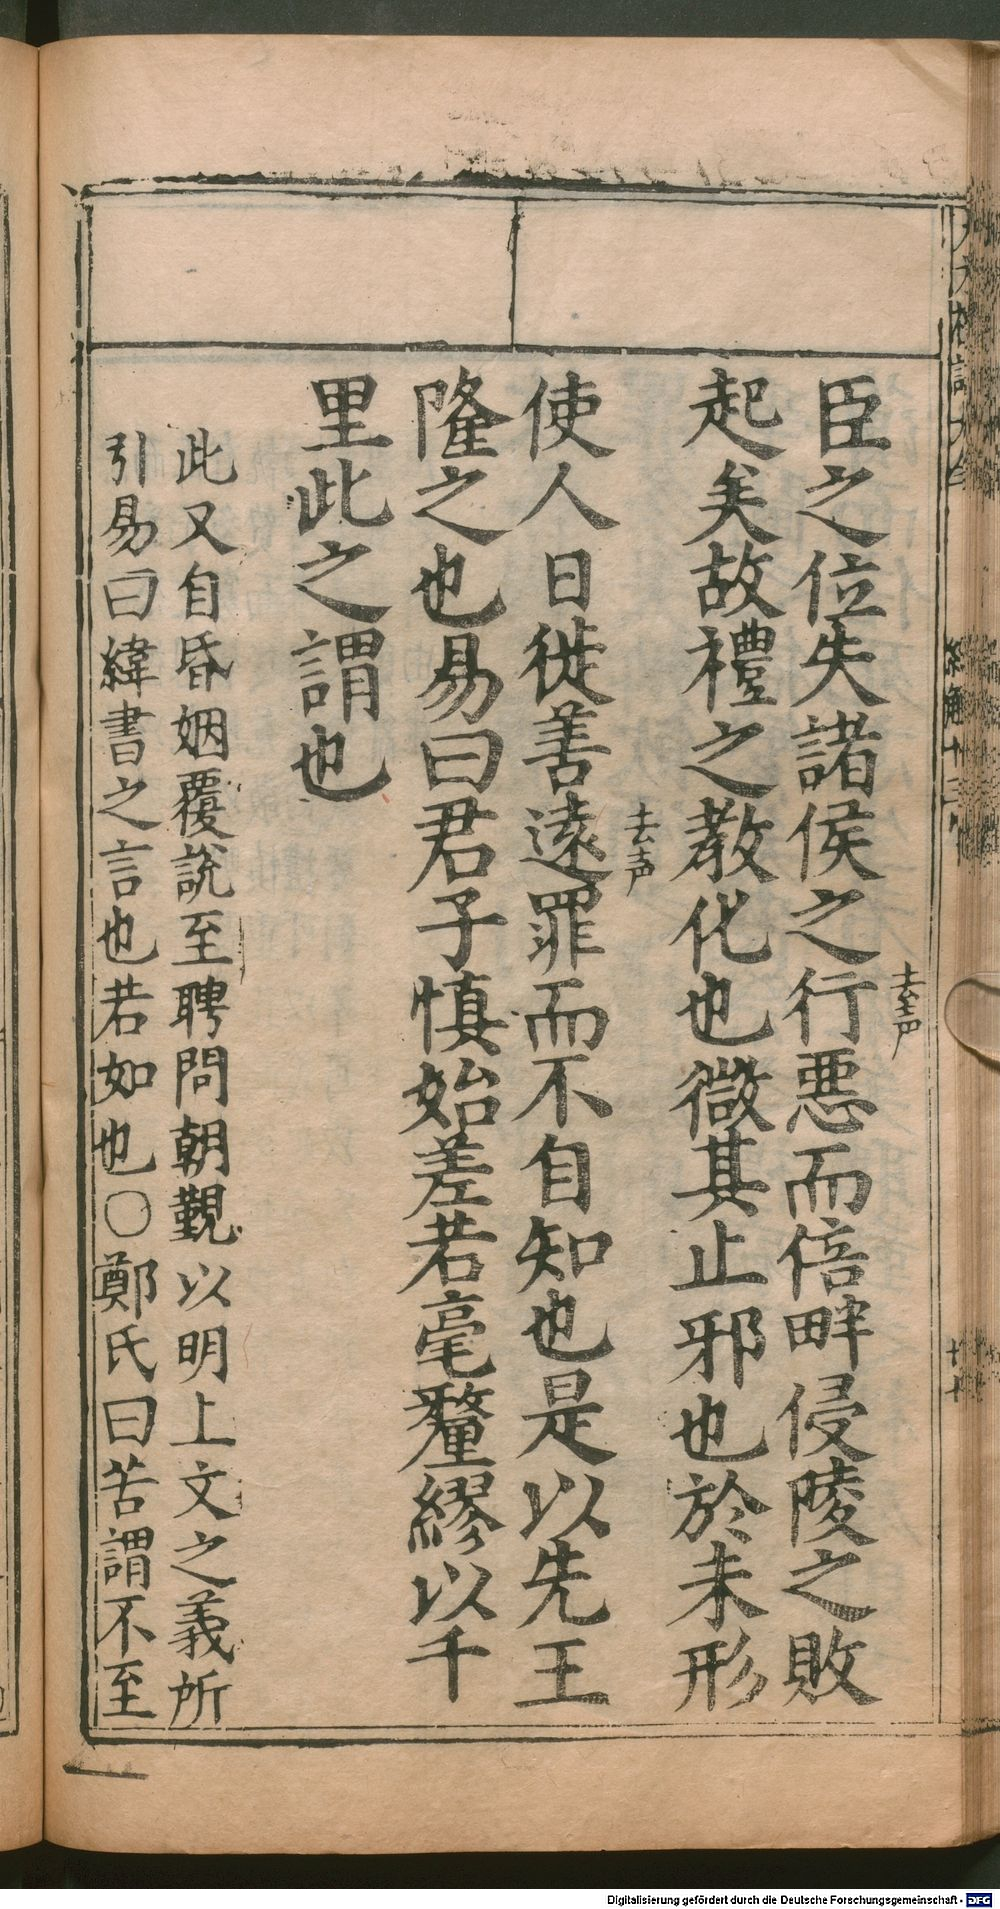 臣之位失諸侯之行悪而倍畔侵陵之敗
去声
起矣故禮之教化也微其止邪也於未形
去声
使人日徙善遠罪而不自知也是以先王
隆之也易曰君子慎始差若毫釐繆以千
里此之謂也
此又自昏姻覆說至聘問朝覲以明上文之義所
引易曰緯書之言也若如也○鄭氏曰苦謂不至
Digitalisierung gefördert durch die Deutsche Forschungsgemeinschaft - DFG